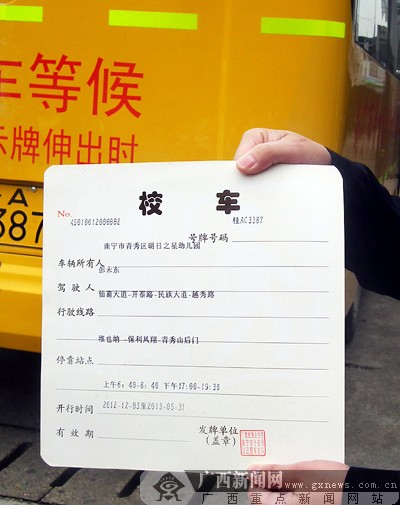 车等候
示牌伸出时
A
3387
校车
No. 45010612000002
桂AC3387
号牌号码
南宁市青秀区明日之星幼儿园
车辆所有人
彭永东
驾驶人
仙葫大道-开泰路-民族大道-越秀路
行驶线路
维也纳-保利凤翔-青秀山后门
停靠站点
上午6:40-8:40 下午17:00-19:30
开行时间
2012-12-03至2013-05-31
有效期
发牌单位
(盖章)
广西新闻网
www.gxnews.com.cn
广西重点新闻网站